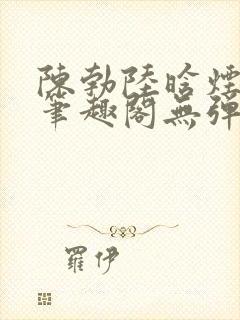 陳勃陸晗煙
筆趣閣無彈
羅伊